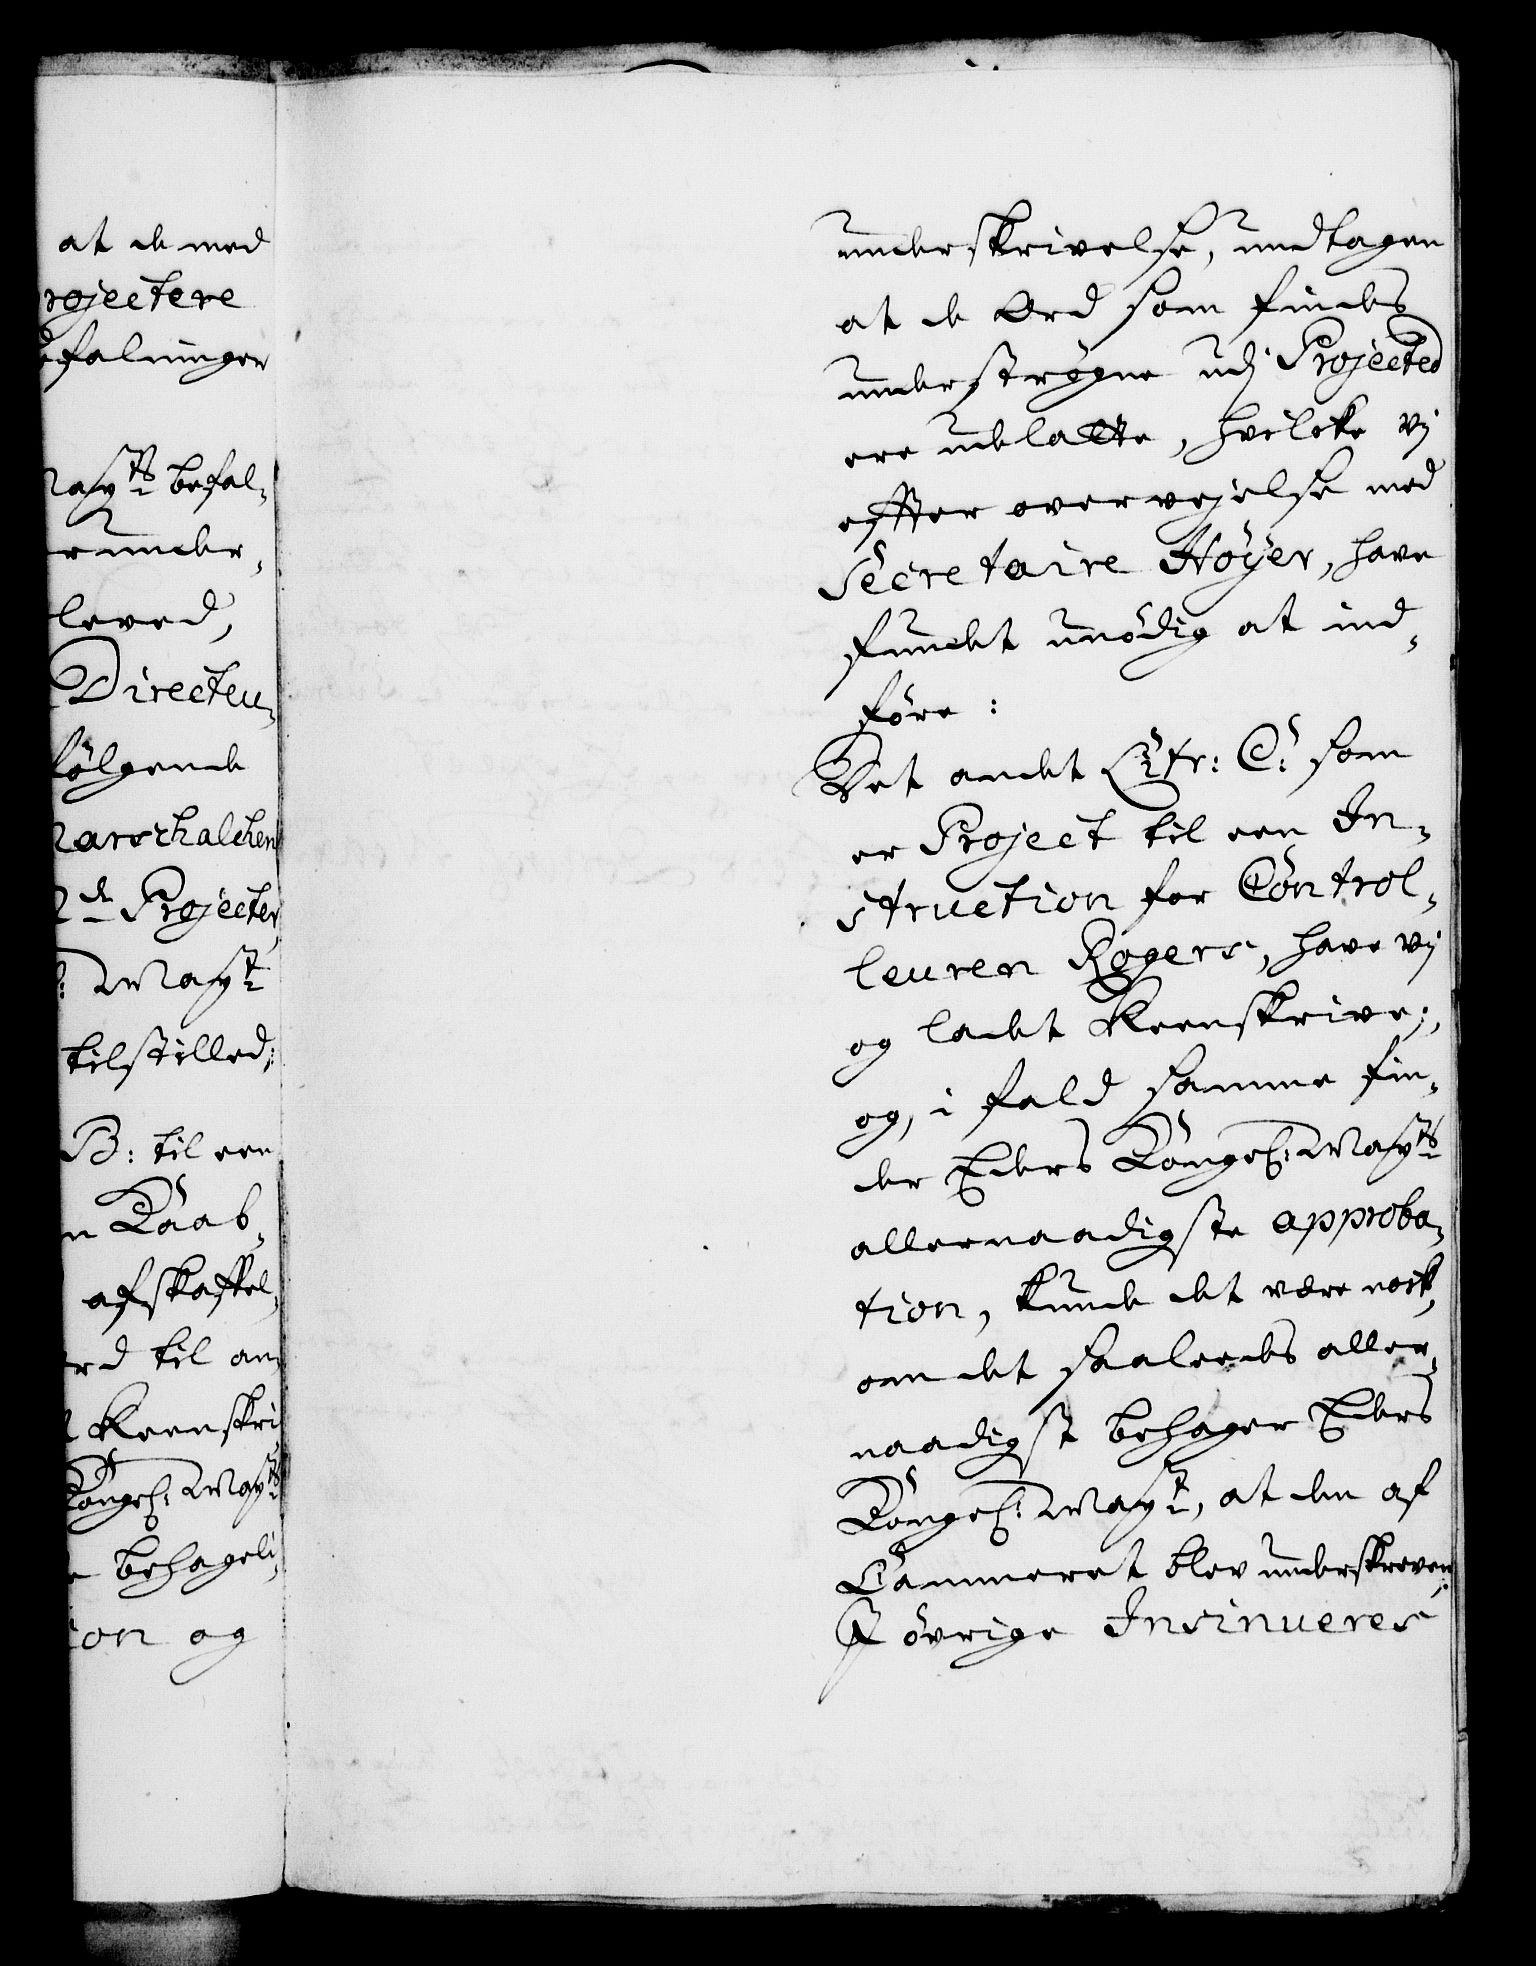 at de med
rojectere
efalninger
Mayts befal-
runder-
leved,
Directeu-
følgende
Marschalchen
de Projecter
Mayt
tilstilled:
B: til een
n Raab-
afskaffel-
rd til an-
t Reenskri
Kongel: Mayts
e behageli-
ion og
underskrivelse, undtagen
at de Ord som findes
understrøgne udj Projected
ere udelatte, hvilcke vj
effter overvejelse med
Secretaire Höÿer, have
fundet unödig at ind-
före:
Det andet Litr: C: som
er Project til een In-
struction for Control-
leuren Rogers, have vj
og ladet Reenskrive;
og, i fald samme fin-
der Eders Kongel: Mayts
allernaadigste approba-
tion, kunde det være nock,
om det saaleedes aller-
naadigst behager Eders
Kongel: Mayt, at den af
Cammeret blev underskreven:
J övrige Insinueres